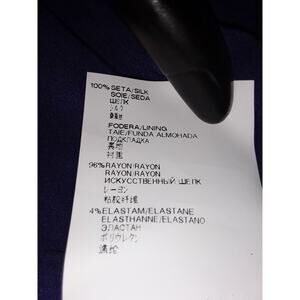 100% SETA/SILK
SOIE/SEDA
ШЕЛК
シルク
FODERA/LINING
TAIE/FUNDA ALMOHADA
ПОДКЛАДКА
裏地
衬里
96% RAYON/RAYON
RAYON/RAYON
ИСКУССТВЕННЫЙ ШЕЛК
レーヨン
粘胶纤维
4% ELASTAM/ELASTANE
ELASTHANNE/ELASTANO
ЭЛАСТАН
ポリウレタン